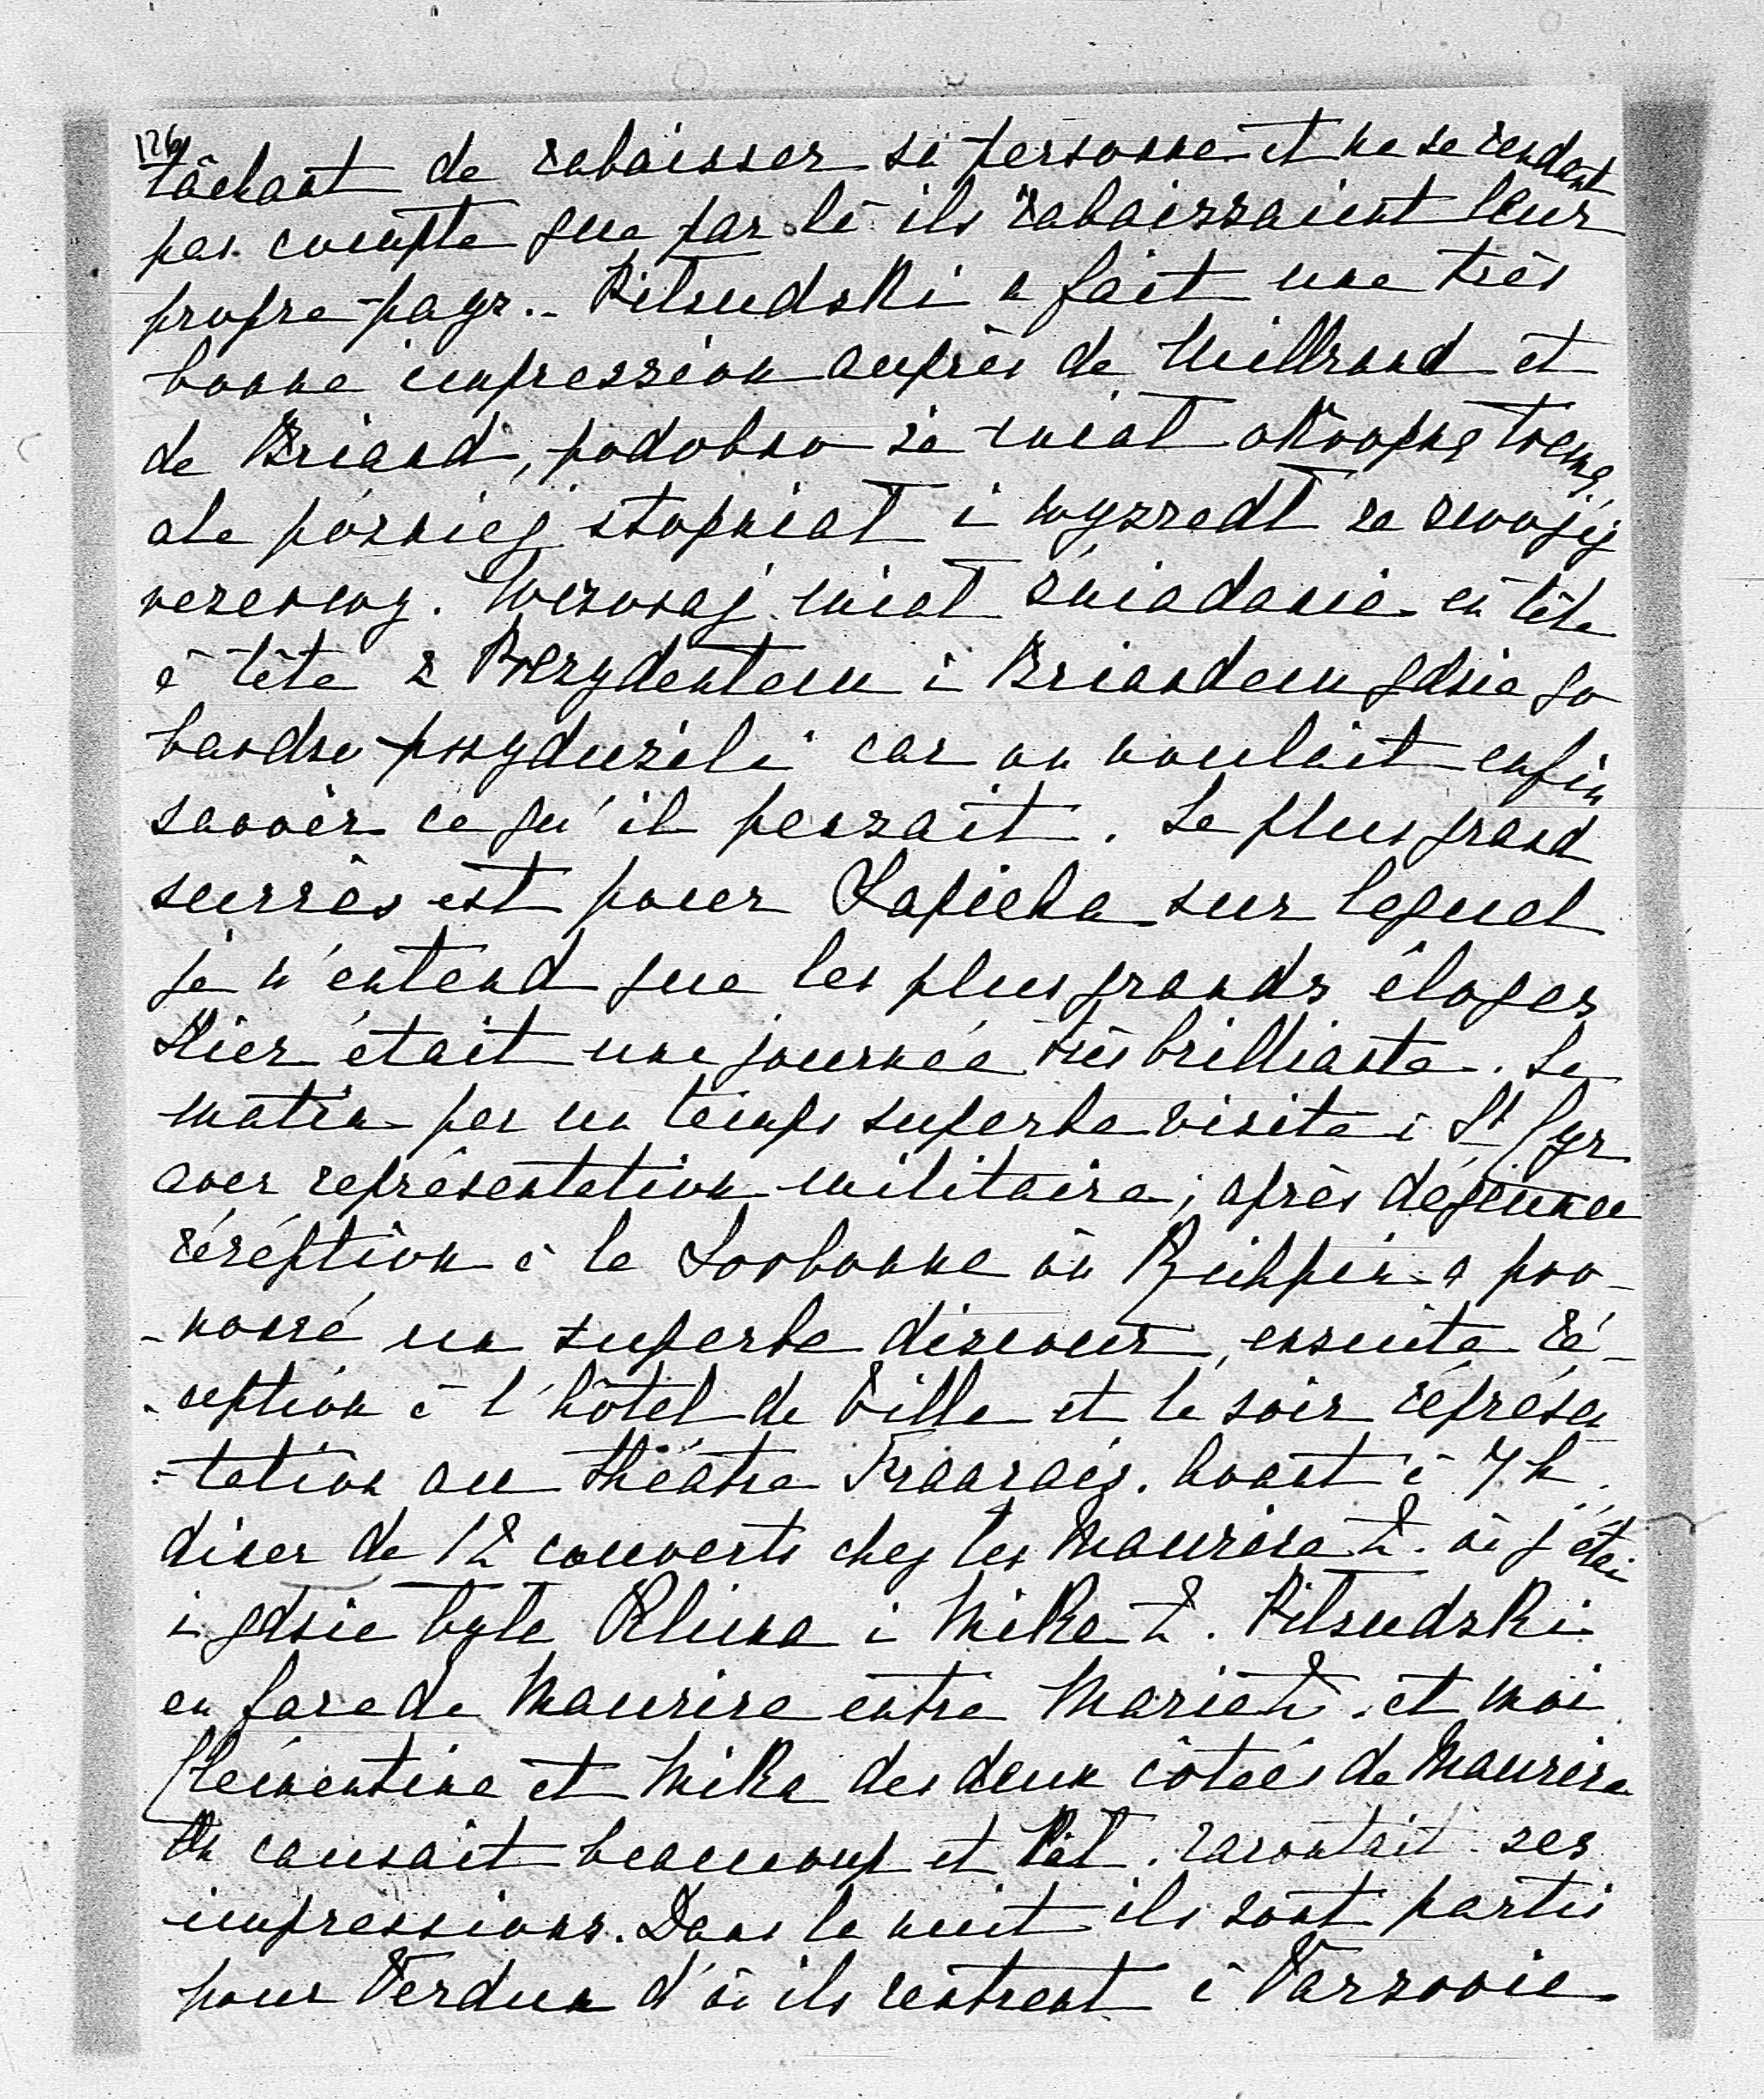 126
tâchant de rabaisser sa personne et ne se rendant
pas compte que par là ils rabaissaient leur
propre pays.. Pilsudski a fait une très
bonne impression auprès de Millrand et
de Briand, podobno że miał okropną tremę,
ale później stopniał i wyszedł ze swojéj
rezerwy. Wczoraj miał śniadanie en tête
à tête z Prezydentem i Briandem gdzie go
bardzo przydusili car on voulait enfin
savoir ce qu'il pensait. Le plus grand
succès est pour Sapieha sur lequel
je n'entend que les plus grands éloges
Hier était une journée très brilliante. Le
matin par un temps superbe visite à St Cyr
avec représentation militaire; après déjeuner
récéption à la Sorbonne où Richpin a pro-
-noncé un superbe discour, ensuite ré-
-ception à l'hôtel de Ville et le soir réprésen
-tation au théâtre Français. Avant à 7 h.
diner de 12 couverts chez les Maurice Z. où j'étai
i gdzie była Klima i Mika Z. Pilsudski
en face de Maurice entre Marie Z. et moi
Clémentine et Mika des deux côtées de Maurice
On causait beaucoup et Pił. racontait ses
impressions. Dans la nuit ils sont partis
pour Verdun d'où ils rentrent à Varsovie